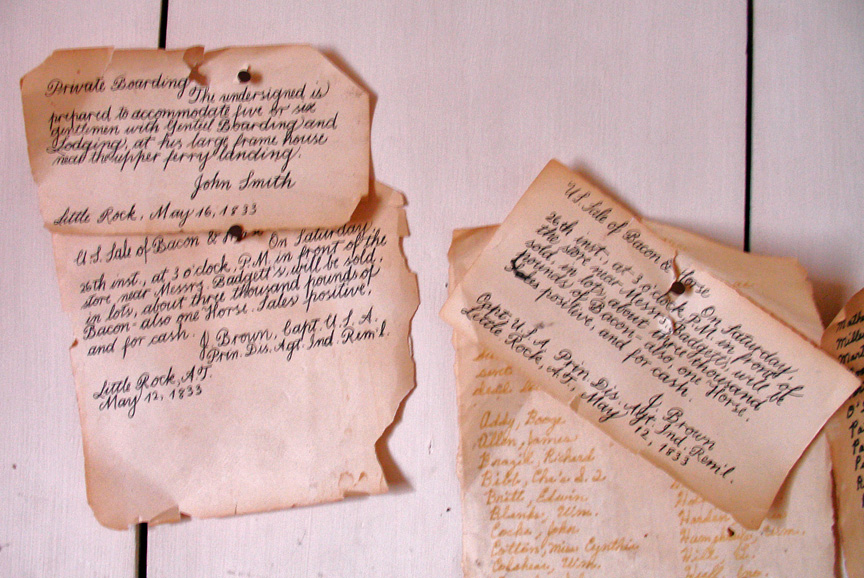 Private Boarding
The undersigned is
prepared to accommodate five or six
gentlemen with Genteel Boarding and
Lodging, at his large frame house
near the upper ferry landing.
John Smith
Little Rock, May 16, 1833
U.S. Sale of Bacon & On Saturday,
26th inst., at 3 o'clock, P.M. in front of the
store near Messrs. Badgett's, will be sold,
in lots, about three thousand pounds of
Bacon - also one Horse. Sales positive,
and for cash. J. Brown, Capt. U.S.A.
Prin. Dis. Agt. Ind. Rem'l.
Little Rock, A.T.
May 12, 1833
U.S. Sale of Bacon & Horse
On Saturday
26th inst., at 3 o'clock P.M. in front of
the store near Messrs. Badgetts, will be
sold in lots, about three thousand
pounds of Bacon - also one Horse.
Sales positive, and for cash.
J. Brown
Capt. U.S.A. Prin. Dis. Agt. Ind. Rem'l.
Little Rock, A.T., May 12, 1833
Addy, Booze
Allen, James
Brazil, Richard
Bibb, Cha's S.
Britt, Edwin
Blanks, Wm.
Cocke, John
Cotton, Miss Cynthia